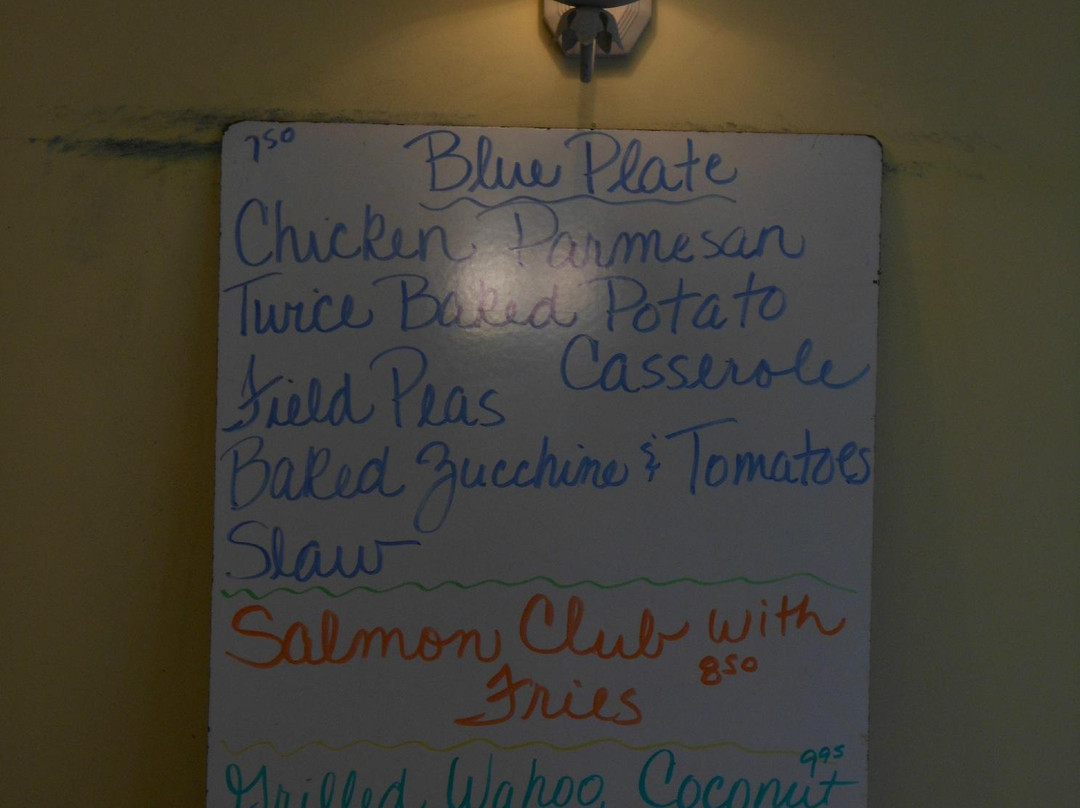 750 Blue Plate
Chicken Parmesan
Twice Baked Potato
Casserole
Field Peas
Baked Zucchine & Tomatoes
Slaw
Salmon Club with
Fries 850
995
Grilled Wahoo, Coconut